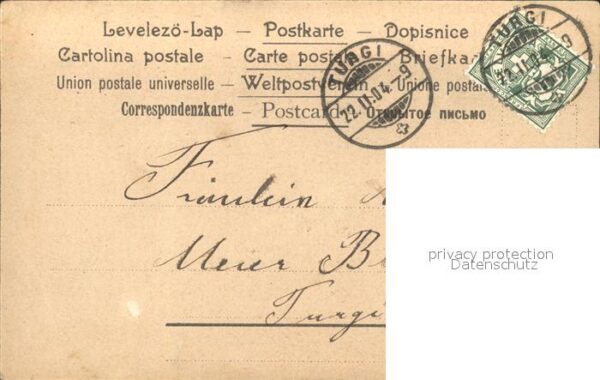 Levelező-Lap — Postkarte — Dopisnice
Cartolina postale — Carte postale — Briefkaart
Union postale universelle — Weltpostverein — Unione postale
Correspondenzkarte — Postcard — Открытое письмо
TURGI
22.II.04.-9
TURGI
22.II.04.-9
Fräulein
Meier
Turgi
privacy protection
Datenschutz